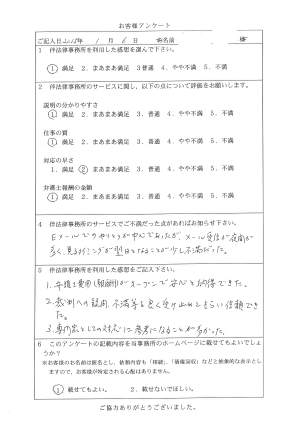 お客様アンケート
ご記入日2015年 1月 6日 お名前 様
1 伴法律事務所を利用した感想を選んで下さい。
1. 満足 2. まあまあ満足 3普通 4. やや不満 5. 不満
2 伴法律事務所のサービスに関し、以下の点について評価をお願いします。
説明の分かりやすさ
1. 満足 2. まあまあ満足 3. 普通 4. やや不満 5. 不満
仕事の質
1. 満足 2. まあまあ満足 3. 普通 4. やや不満 5. 不満
対応の早さ
1. 満足 2 まあまあ満足 3. 普通 4. やや不満 5. 不満
弁護士報酬の金額
1 満足 2. まあまあ満足 3. 普通 4. やや不満 5. 不満
4 伴法律事務所のサービスでご不満だった点があればお知らせ下さい。
Eメールでのやりとりが中心であったが、メール受信が夜間が
多く、見るタイミングが翌日となることが少し不満だった。
5 伴法律事務所を利用した感想をご記入下さい。
1. 弁護士費用(報酬)がオープンで安心と納得できた。
2. 裁判への疑問、不満等も良く受け止めてもらい信頼でき
た。
3. 専門家としての対応に参考になることが多かった。
6 このアンケートの記載内容を当事務所のホームページに載せてもよいでしょ
うか?
※お客様のお名前は匿名とし、依頼内容も「相続」「債権回収」などと抽象的な表示とし
ますので、お客様が特定される心配はありません。
1 載せてもよい。 2. 載せないでほしい。
ご協力ありがとうございました。